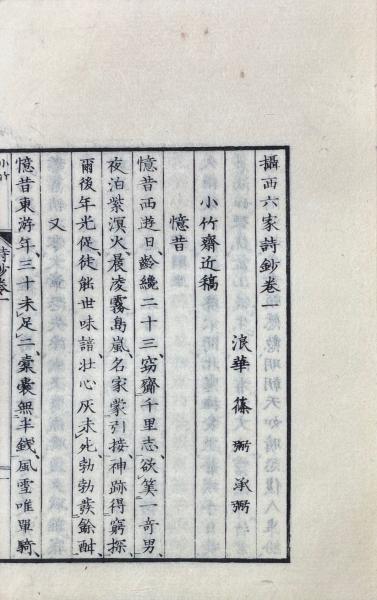 攝西六家詩鈔卷一
浪華 篠 弼 承弼
小竹齋近稿
憶昔
憶昔西遊日齡纔二十三窃齎千里志欲䇲一奇男
夜泊紫溟火晨凌霧島嵐名家蒙引接神跡得窮探
爾後年光促徒能世味諳壯心灰未死勃勃發餘酣
又
憶昔東游年三十未足二橐嚢無半錢風雪唯單騎
小竹
詩鈔卷